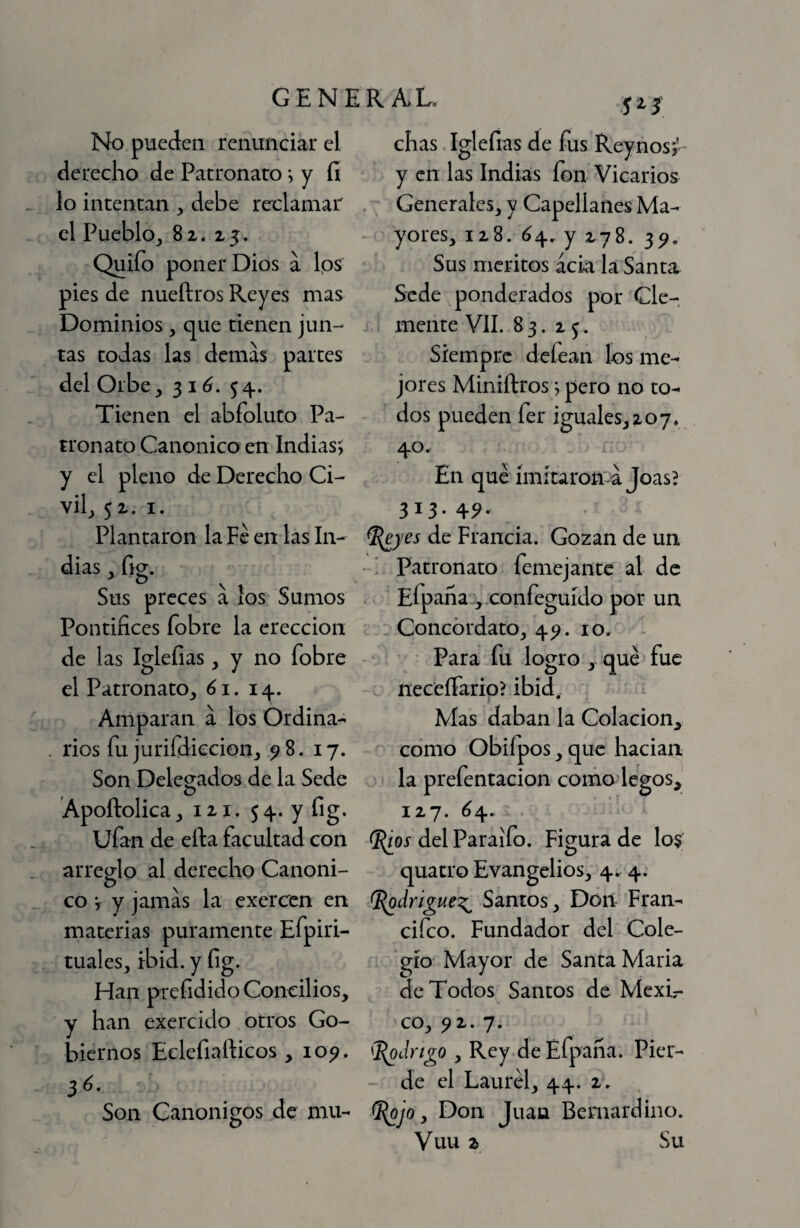 GENERAL.
523
No pueden renunciar el
derecho de Patronato; y ſi
lo intentan, debe reclamar
el Pueblo, 82. 23.
Quiſo poner Dios à los
pies de nueſtros Reyes mas
Dominios, que tienen jun-
tas todas las demàs partes
del Orbe, 316. 54.
Tienen el abſoluto Pa-
tronato Canonico en Indias;
y el pleno de Derecho Ci-
vil, 52. 1.
Plantaron la Fè en las In-
dias, ſig.
Sus preces à los Sumos
Pontifices ſobre la ereccion
de las Igleſias, y no ſobre
el Patronato, 61. 14.
Amparan à los Ordina-
rios ſu juriſdiccion, 98. 17.
Son Delegados de la Sede
Apoſtolica, 121. 54. y ſig.
Uſan de eſta facultad con
arreglo al derecho Canoni-
co; y jamàs la exercen en
materias puramente Eſpiri-
tuales, ibid. y ſig.
Han preſidido Concilios,
y han exercido otros Go-
biernos Ecleſiaſticos, 109.
36.
Son Canonigos de mu-
chas Igleſias de ſus Reynos;
y en las Indias ſon Vicarios
Generales, y Capellanes Ma-
yores, 128. 64. y 278. 39.
Sus meritos àcia la Santa
Sede ponderados por Cle-
mente VII. 83. 25.
Siempre deſean los me-
jores Miniſtros; pero no to-
dos pueden ſer iguales, 207.
40.
En què imitaron à Joas?
313. 49.
Reyes de Francia. Gozan de un
Patronato ſemejante al de
Eſpaña, conſeguido por un
Concordato, 49. 10.
Para ſu logro, què fue
neceſſario? ibid.
Mas daban la Colacion,
como Obiſpos, que hacian
la preſentacion como legos,
127. 64.
Rios del Paraìſo. Figura de los
quatro Evangelios, 4. 4.
Rodriguez Santos, Don Fran-
ciſco. Fundador del Cole-
gio Mayor de Santa Maria
de Todos Santos de Mexi-
co, 92. 7.
Rodrigo, Rey de Eſpaña. Pier-
de el Laurèl, 44. 2.
Rojo, Don Juan Bernardino.
Vuu 2
Su